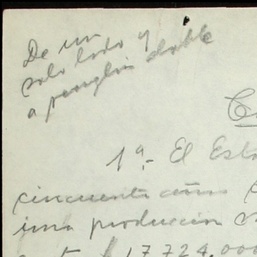 De un
solo lado y
a renglón doble
1ª.- El Esta
cincuenta años
una producción
$ 17.724.000